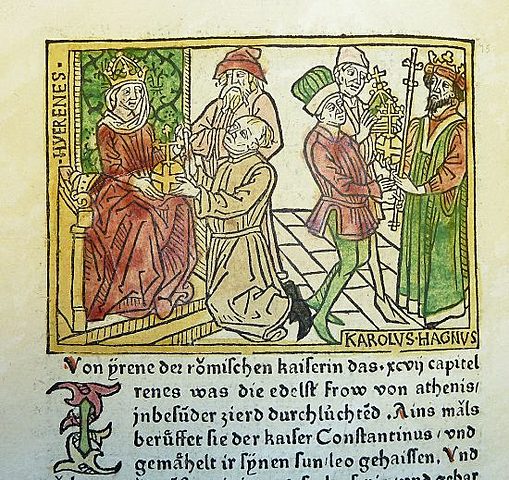 HVERENES·
KAROLVS·MAGNVS
Von ÿrene der rŏmischen kaiserin das ·xcvij capitel
Irenes was die edelst frow von athenis/
jnbesūder zierd durchlúchtēd . Ains mǎls
berůffet sie der kaiser Constantinus / vnd
gemǎhelt ir sýnen sun/leo gehaissen. Vnd